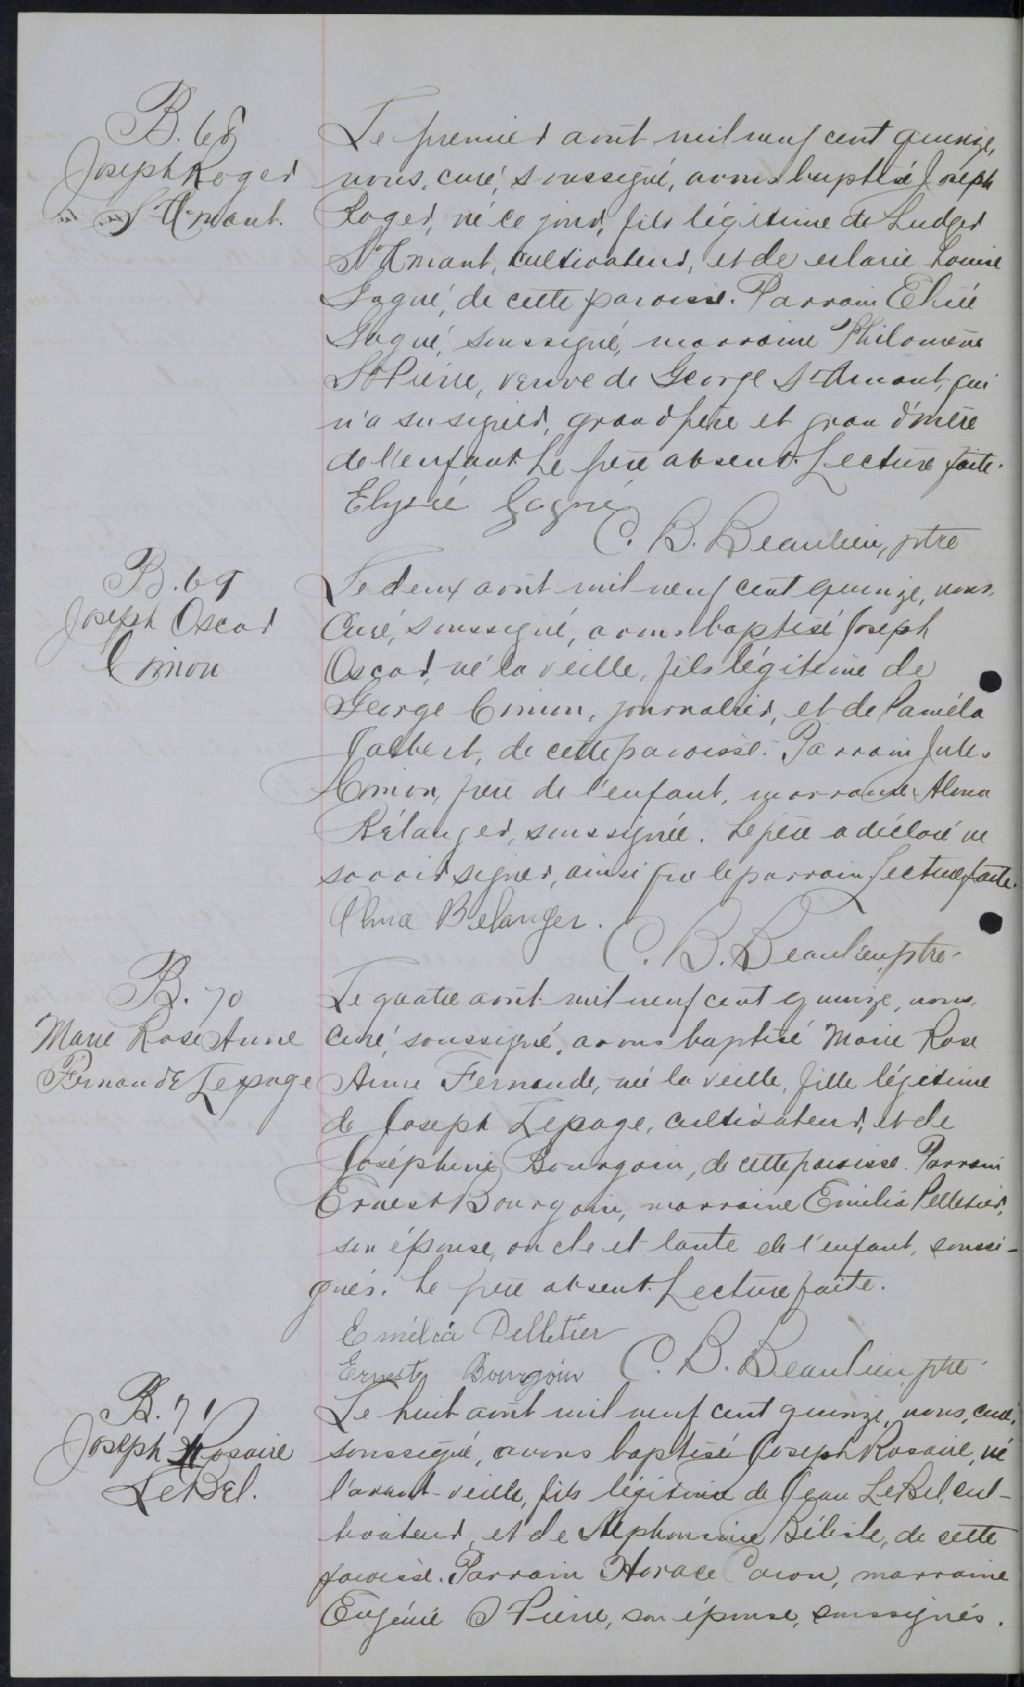 B. 68
Joseph Roger
St Amant.
Le premier août mil neuf cent quinze,
nous, curé, soussigné, avons baptisé Joseph
Roger, né ce jour, fils légitime de Ludger
St Amant, cultivateur, et de Marie Louise
Gagné, de cette paroisse. Parrain Elisée
Gagné, soussigné, marraine Philomène
St Pierre, veuve de George St Amant, qui
n'a su signer, grand père et grand'mère
de l'enfant. Le père absent. Lecture faite.
Elysée Gagné
C. B. Beaulieu, ptre
B. 69
Joseph Oscar
Cimon
Le deux août mil neuf cent quinze, nous,
Curé, soussigné, avons baptisé Joseph
Oscar, né la veille, fils légitime de
George Cimon, journalier, et de Paméla
Jalbert, de cette paroisse. Parrain Jules
Cimon, frère de l'enfant, marraine Alma
Bélanger, soussignée. Le père a déclaré ne
savoir signer, ainsi que le parrain. Lecture faite.
Alma Belanger.
C. B. Beaulieu, ptre.
B. 70
Marie Rose Anne
Fernande Lepage
Le quatre août mil neuf cent quinze, nous
curé, soussigné, avons baptisé Marie Rose
Anne Fernande, née la veille, fille légitime
de Joseph Lepage, cultivateur, et de
Joséphine Bourgoin, de cette paroisse. Parrain
Ernest Bourgoin, marraine Emilia Pelletier,
son épouse, oncle et tante de l'enfant, soussi-
gnés. Le père absent. Lecture faite.
Emélia Pelletier
Ernest Bourgoin
C. B. Beaulieu, ptre.
B. 71
Joseph Rosaire
LeBel.
Le huit août mil neuf cent quinze, nous, curé,
soussigné, avons baptisé Joseph Rosaire, né
l'avant-veille, fils légitime de Jean LeBel, cul-
tivateur, et de Alphonsine Bélisle, de cette
paroisse. Parrain Horace Caron, marraine
Eugénie St Pierre, son épouse, soussignés.